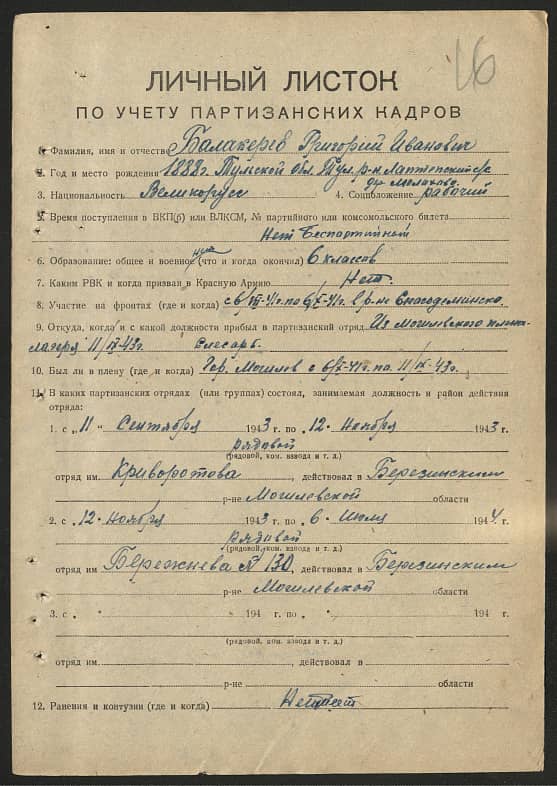 16
ЛИЧНЫЙ ЛИСТОК
ПО УЧЕТУ ПАРТИЗАНСКИХ КАДРОВ
1. Фамилия, имя и отчество Балакерев Григорий Иванович
2. Год и место рождения 1888г. Тульской обл. Тул. р-н Лаптевский с/с
3. Национальность Великорус 4. Соцположение рабочий
5. Время поступления в ВКП(б) или ВЛКСМ, № партийного или комсомольского билета
Нет Беспартийный
6. Образование: общее и военное (что и когда окончил) 6 классов
7. Каким РВК и когда призван в Красную Армию Нет.
8. Участие на фронтах (где и когда) с 6/VII-41г. по 6/X-41г. в р-не
9. Откуда, когда и с какой должности прибыл в партизанский отряд Из Могилевского плена
лагеря 11/IX-43г. Слесарь
10. Был ли в плену (где и когда) Гор. Могилев с 6/X-41г. по 11/IX-43г.
11. В каких партизанских отрядах (или группах) состоял, занимаемая должность и район действия
отряда:
1. с „11“ Сентября 1943 г. по „12“ Ноября 1943 г.
рядовой
(рядовой, ком. взвода и т. д.)
отряд им. Криворотова, действовал в Березинским
р-не Могилевской области
2. с „12“ Ноября 1943 г. по „6“ Июля 1944 г.
рядовой
(рядовой, ком. взвода и т. д.)
отряд им. Бережнева № 130, действовал в Березинским
р-не Могилевской области
3. с „ “ 194 г. по „ “ 194 г.
(рядовой, ком. взвода и т. д.)
отряд им. , действовал в
р-не области
12. Ранения и контузии (где и когда) Нет